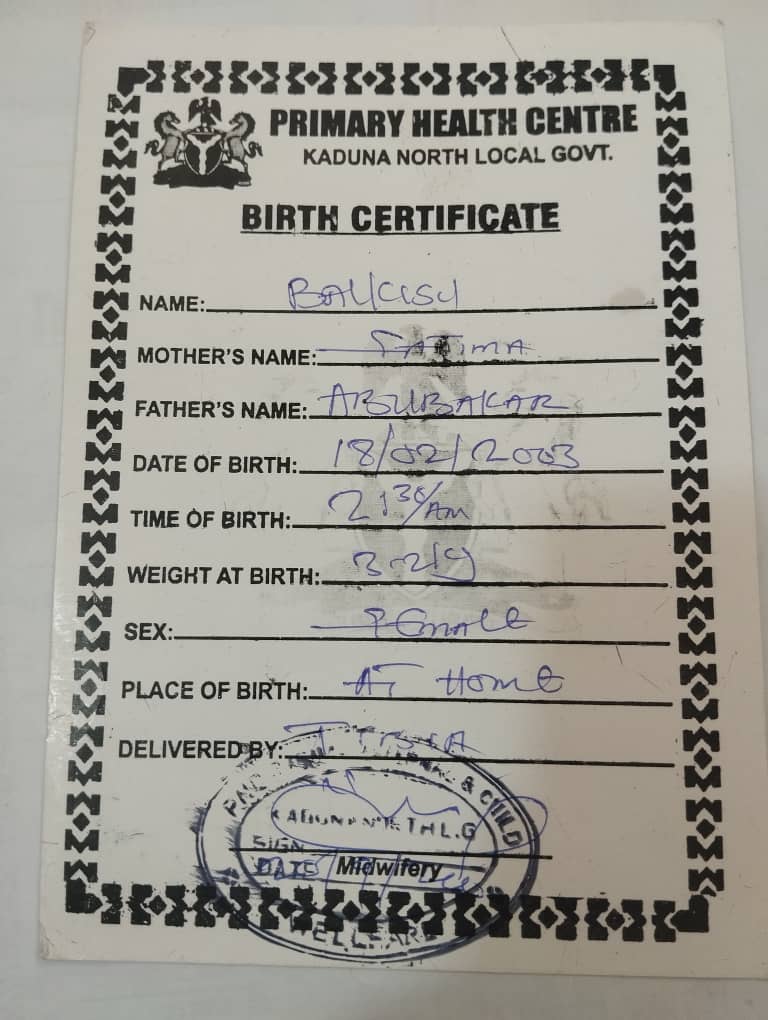 PRIMARY HEALTH CENTRE
KADUNA NORTH LOCAL GOVT.
BIRTH CERTIFICATE
NAME:
MOTHER'S NAME: FATIMA
FATHER'S NAME: ABUBAKAR
DATE OF BIRTH: 18/02/2003
TIME OF BIRTH: 2:30/AM
WEIGHT AT BIRTH:
SEX: FEMALE
PLACE OF BIRTH: AT HOME
DELIVERED BY:
& CHILD
TH L.G
SIGN
DATE
Midwifery
WELLFARE